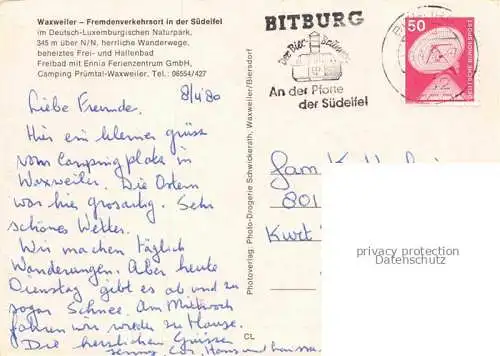 Waxweiler – Fremdenverkehrsort in der Südeifel
im Deutsch-Luxemburgischen Naturpark,
345 m über N/N, herrliche Wanderwege,
beheiztes Frei- und Hallenbad
Freibad mit Ennia Ferienzentrum GmbH,
Camping Prümtal-Waxweiler, Tel.: 06554/427
8/4 '80
Liebe Freunde.
Hier ein kleiner grüss
vom Campingplatz in
Waxweiler. Die Ostern
war hier grosartig. Sehr
schönes Wetter.
Wir machen täglich
Wanderungen. Aber heute
Dienstag gibt es ab und zu
sogar Schnee. Am Mittwoch
fahren wir wieder zu Hause.
Die herzlichen Grüsse
Hans und
Photoverlag: Photo-Drogerie Schwickerath, Waxweiler/Biersdorf
CL
BITBURG
Der Bier Brunnen
An der Pforte
der Südeifel
50
DEUTSCHE BUNDESPOST
Fam.
801
Kurt
privacy protection
Datenschutz